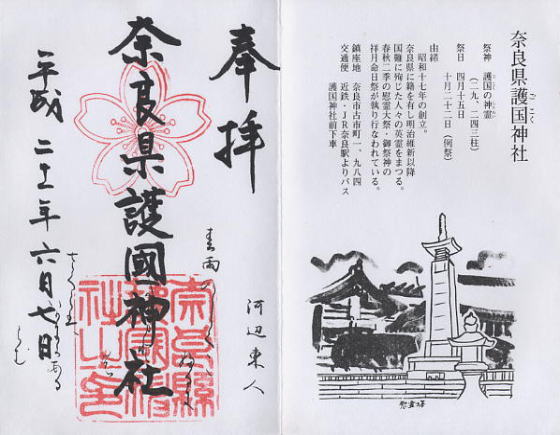 奈良県護国神社
ごこく
祭神　護国の神霊
（二九、二四三柱）
祭日　四月十五日
十月二十二日（例祭）
由緒
昭和十七年の創立。
奈良県に籍を有し明治維新以降
国難に殉じた人々の英霊をまつる。
春秋二季の慰霊大祭・御祭神の
祥月命日祭が執り行なわれている。
鎮座地　奈良市古市町一、九八四
交通便　近鉄・ＪＲ奈良駅よりバス
護国神社前下車
奉拝
河辺東人
春雨
奈良県護國神社
平成二十一年六月七日